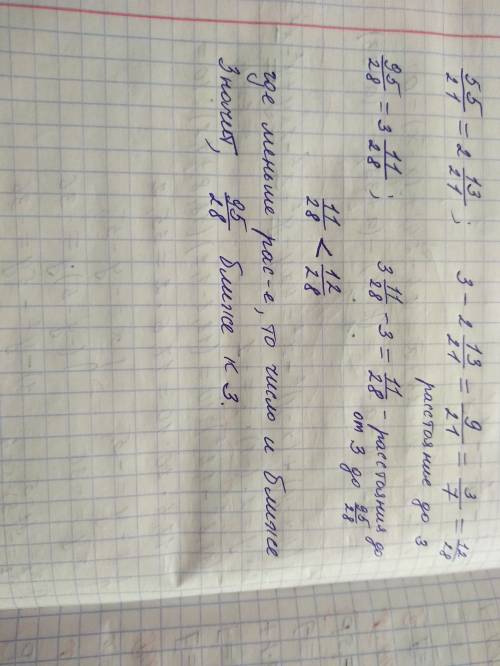 55/21 = 2 13/21 ; 3 - 2 13/21 = 9/21 = 3/7 = 12/28
расстояние до 3
95/28 = 3 11/28 ; 3 11/28 - 3 = 11/28 - расстояния до
от 3 до 95/28
11/28 < 12/28
где меньше рас-е, то число и ближе
Значит, 95/28 ближе к 3.